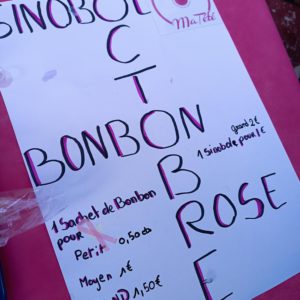 SINOBOL
MaTété
C
T
O
BONBON
B
ROSE
R
E
Grand 2€
1 Sinobole pour 1€
1 Sachet de Bonbon
pour
Petit 0,50cts
Moyen 1€
ND 1,50€